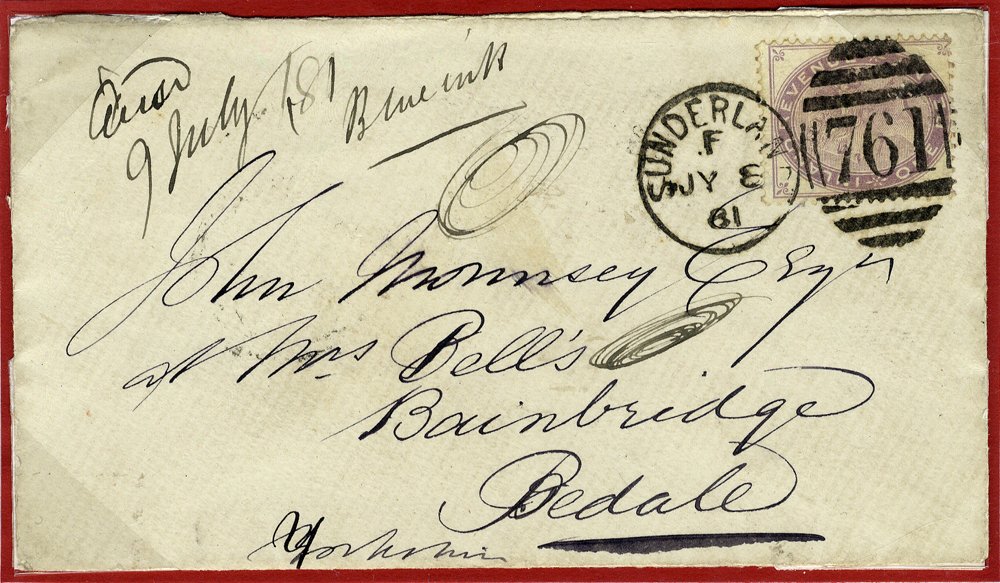 9 July /81 Blue ink
SUNDERLAND
F
JY 8
81
761
John Mounsey Esqr
at Mrs Bell's
Bainbridge
Bedale
Yorkshire